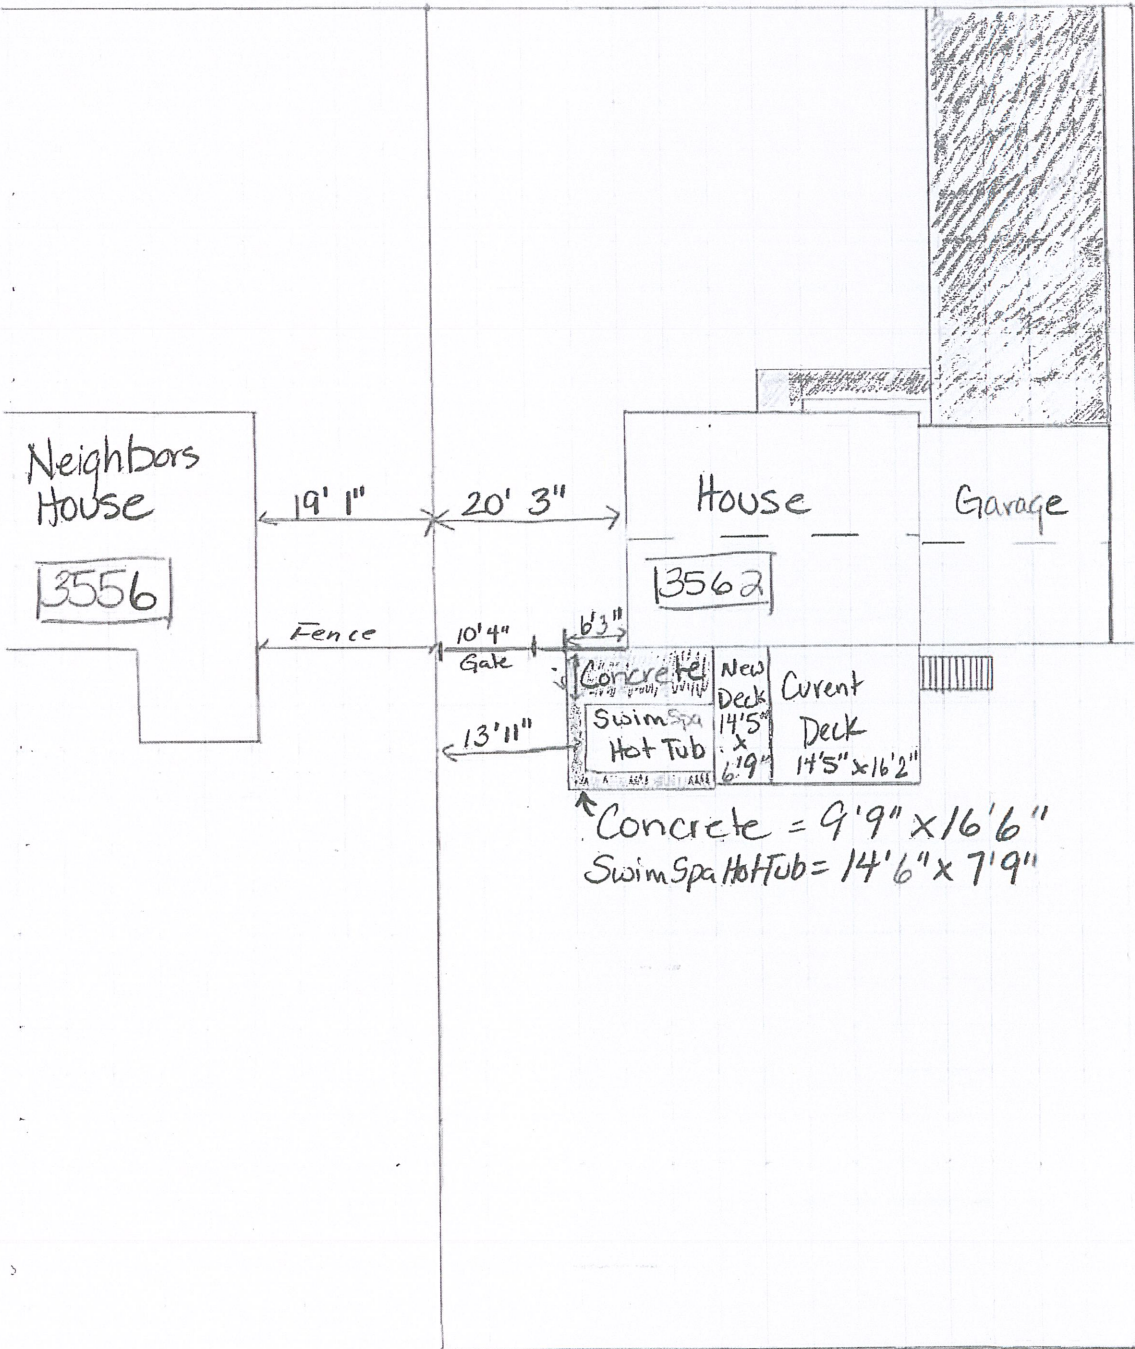 Neighbors
House
3556
19' 1"
20' 3"
House
3562
Garage
Fence
10'4"
Gate
6'3"
Concrete
SwimSpa
Hot Tub
New
Deck
14'5"
x
6'9"
Curent
Deck
14'5" x 16'2"
13'11"
Concrete = 9'9" x 16'6"
SwimSpa HotTub = 14'6" x 7'9"